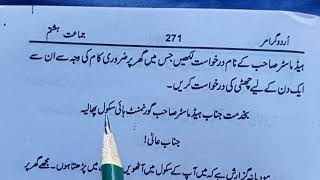 اُردو گرامر 271 جماعت ہشتم
ہیڈ ماسٹر صاحب کے نام درخواست لکھیں جس میں گھر پر ضروری کام کی وجہ سے ان سے
ایک دن کے لیے چھٹی کی درخواست کریں۔
بخدمت جناب ہیڈ ماسٹر صاحب گورنمنٹ ہائی سکول پھالیہ
جناب عالی!
مودبانہ گزارش ہے کہ میں آپ کے سکول میں آٹھویں میں پڑھتا ہوں۔ مجھے گھر پر